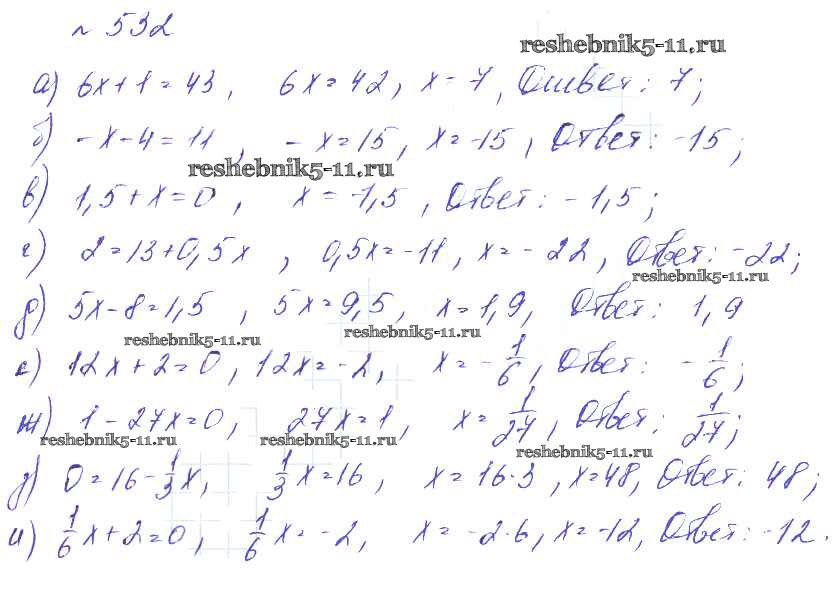 № 532
reshebnik5-11.ru
а) 6x+1=43, 6x=42, x=7, Ответ: 7;
б) -x-4=11, -x=15, x=-15, Ответ: -15;
reshebnik5-11.ru
в) 1,5+x=0, x=-1,5, Ответ: -1,5;
г) 2=13+0,5x, 0,5x=-11, x=-22, Ответ: -22;
reshebnik5-11.ru
д) 5x-8=1,5, 5x=9,5, x=1,9, Ответ: 1,9
reshebnik5-11.ru reshebnik5-11.ru
е) 12x+2=0, 12x=-2, x=-1/6, Ответ: -1/6;
ж) 1-27x=0, 27x=1, x=1/27, Ответ: 1/27;
reshebnik5-11.ru reshebnik5-11.ru reshebnik5-11.ru
з) 0=16-1/3x, 1/3x=16, x=16·3, x=48, Ответ: 48;
и) 1/6x+2=0, 1/6x=-2, x=-2·6, x=-12, Ответ: -12.